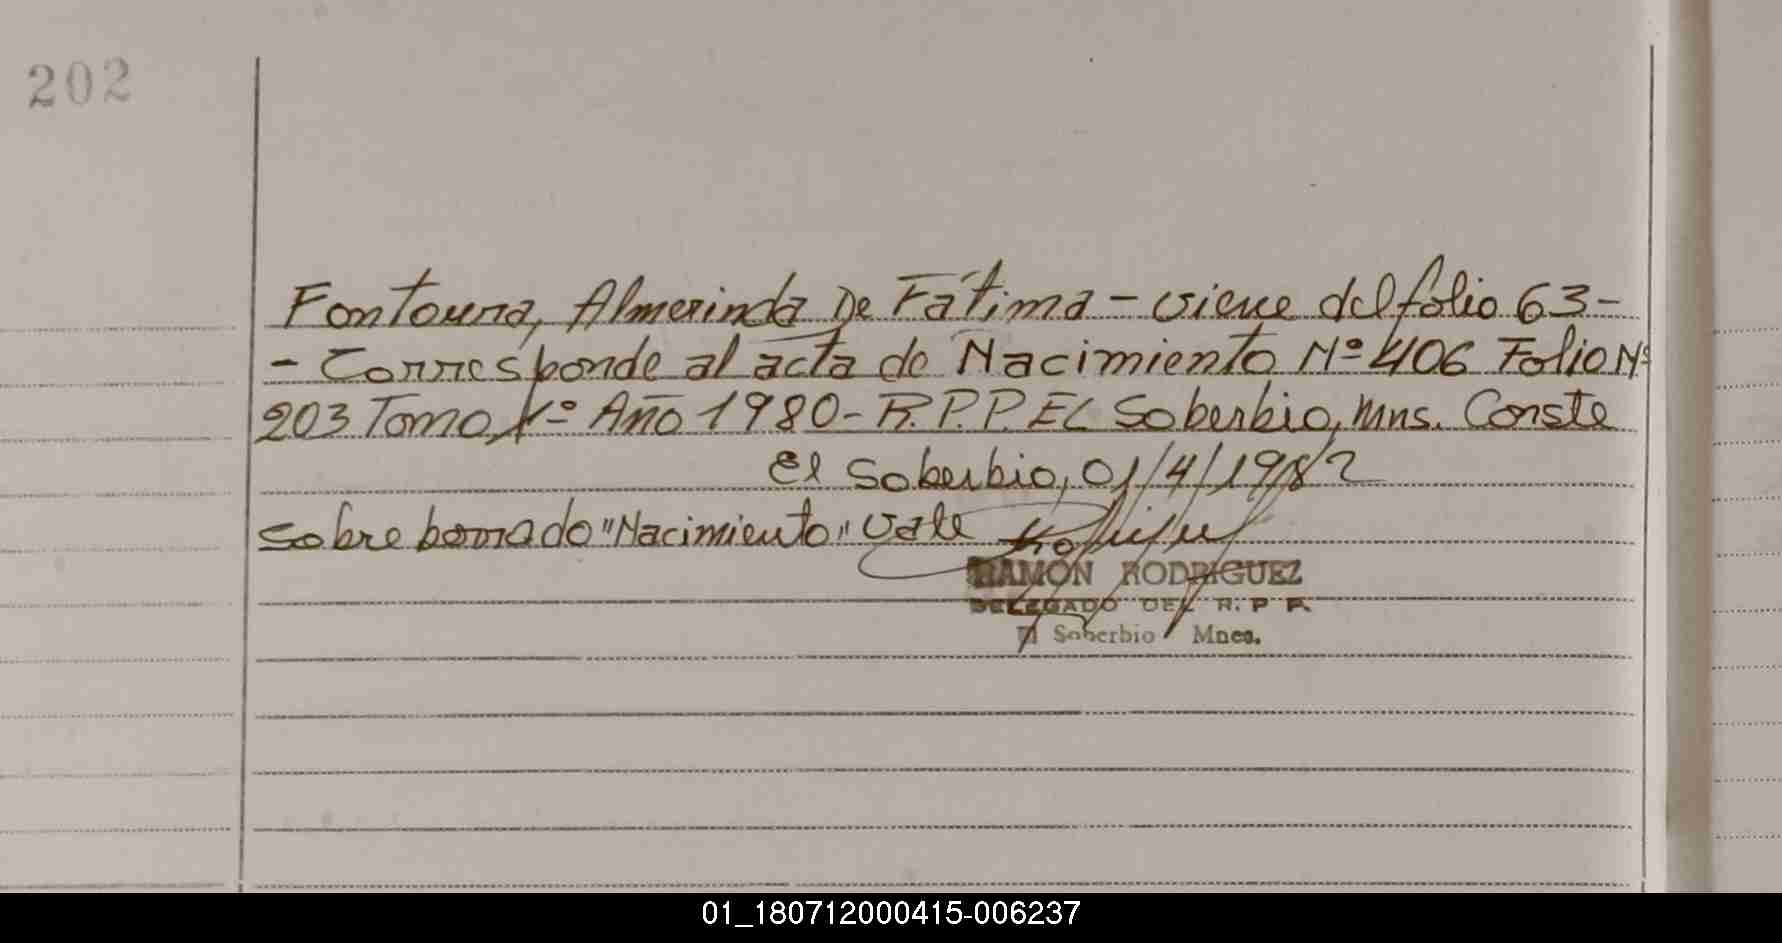 202
Fontoura, Almerinda De Fátima - viene del folio 63-
- Corresponde al acta de Nacimiento Nº 406 Folio Nº
203 Tomo 1º Año 1980- R.P.P. EL Soberbio, Mns. Conste
El Soberbio, 01/4/1982
Sobre borrado "Nacimiento" vale
RAMON RODRIGUEZ
DELEGADO DEL R. P P.
El Soberbio Mnes.
01_180712000415-006237